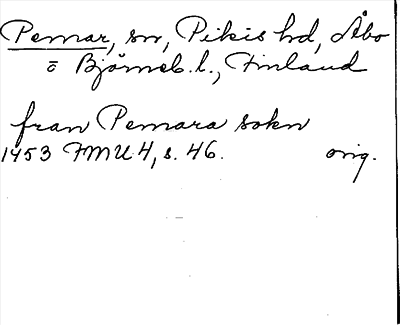 Pemar, sn, Pikis hd, Åbo
o Björneb. l., Finland
fran Pemara sokn
1453 FMU 4, s. 46. orig.